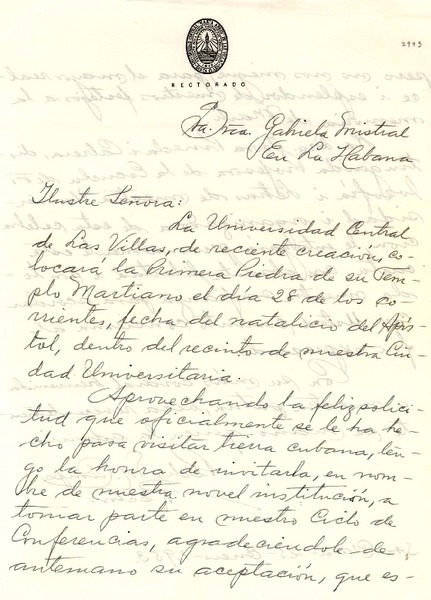 2993
RECTORADO
Gabriela Mistral
En La Habana
Ilustre Señora:
La Universidad Central
de Las Villas, de reciente creación, co-
locará la Primera Piedra de su Tem-
plo Martiano el día 28 de los co-
rrientes, fecha del natalicio del Após-
tol, dentro del recinto de nuestra Ciu-
dad Universitaria.
Aprovechando la feliz solici-
tud que oficialmente se le ha he-
cho para visitar tierra cubana, ten-
go la honra de invitarla, en nom-
bre de nuestra novel institución, a
tomar parte en nuestro Ciclo de
Conferencias, agradeciéndole de
antemano su aceptación, que es-